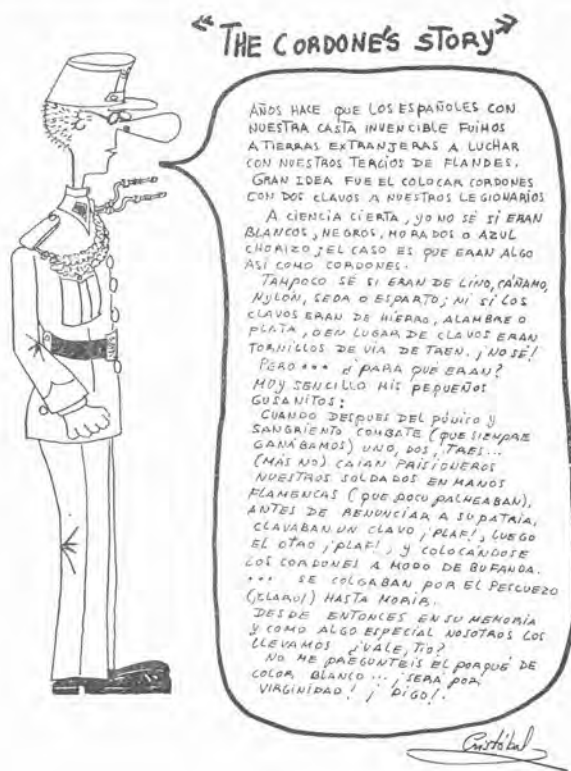 "THE CORDONE'S STORY"
AÑOS HACE QUE LOS ESPAÑOLES CON
NUESTRA CASTA INVENCIBLE FUIMOS
A TIERRAS EXTRANJERAS A LUCHAR
CON NUESTROS TERCIOS DE FLANDES.
GRAN IDEA FUE EL COLOCAR CORDONES
CON DOS CLAVOS A NUESTROS LEGIONARIOS
A CIENCIA CIERTA, YO NO SÉ SI ERAN
BLANCOS, NEGROS, MORADOS O AZUL
CHORIZO; EL CASO ES QUE ERAN ALGO
ASÍ COMO CORDONES.
TAMPOCO SÉ SI ERAN DE LINO, CAÑAMO,
NYLON, SEDA O ESPARTO; NI SI LOS
CLAVOS ERAN DE HIERRO, ALAMBRE O
PLATA, O EN LUGAR DE CLAVOS ERAN
TORNILLOS DE VIA DE TREN. ¡NO SÉ!
PERO... ¿PARA QUE ERAN?
MUY SENCILLO MIS PEQUEÑOS
GUSANITOS:
CUANDO DESPUES DEL PÚNICO Y
SANGRIENTO COMBATE (QUE SIEMPRE
GANÁBAMOS) UNO, DOS, TRES...
(MÁS NO). CAIAN PRISIONEROS
NUESTROS SOLDADOS EN MANOS
FLAMENCAS (QUE POCO PALMEABAN),
ANTES DE RENUNCIAR A SU PATRIA,
CLAVABAN UN CLAVO ¡PLAF!, LUEGO
EL OTRO ¡PLAF!, Y COLOCÁNDOSE
LOS CORDONES A MODO DE BUFANDA.
... SE COLGABAN POR EL PESCUEZO
(¡CLARO!) HASTA MORIR.
DESDE ENTONCES EN SU MEMORIA
Y COMO ALGO ESPECIAL NOSOTROS LOS
LLEVAMOS ¿VALE, TIO?
NO ME PREGUNTEIS EL PORQUÉ DE
COLOR BLANCO... ¡SERÁ POR
VIRGINIDAD! ¡DIGO!.
Cristóbal